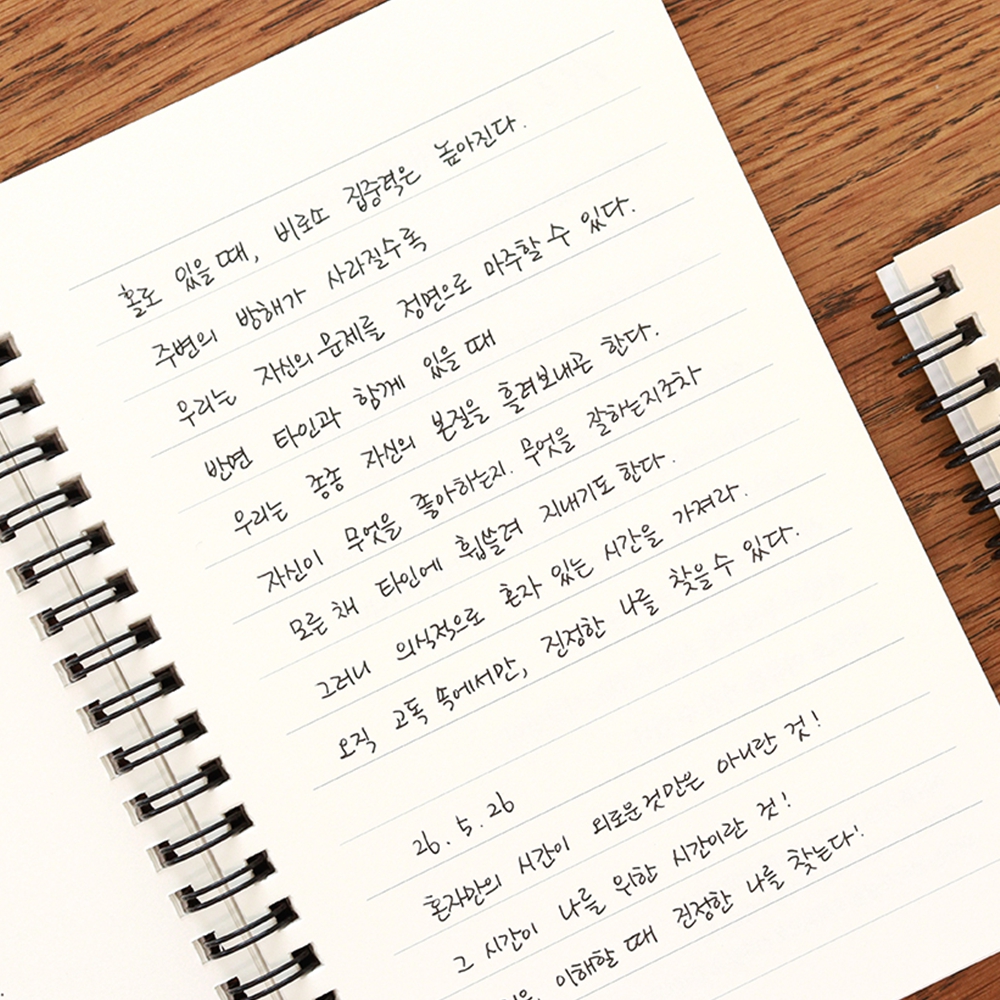 홀로 있을 때, 비로소 집중력은 높아진다.
주변의 방해가 사라질수록
우리는 자신의 문제를 정면으로 마주할 수 있다.
반면 타인과 함께 있을 때
우리는 종종 자신의 본질을 흘려보내곤 한다.
자신이 무엇을 좋아하는지. 무엇을 잘하는지조차
모른 채 타인에 휩쓸려 지내기도 한다.
그러니 의식적으로 혼자 있는 시간을 가져라.
오직 고독 속에서만, 진정한 나를 찾을 수 있다.
26. 5. 26
혼자만의 시간이 외로운 것만은 아니란 것!
그 시간이 나를 위한 시간이란 것!
이해할 때 진정한 나를 찾는다!